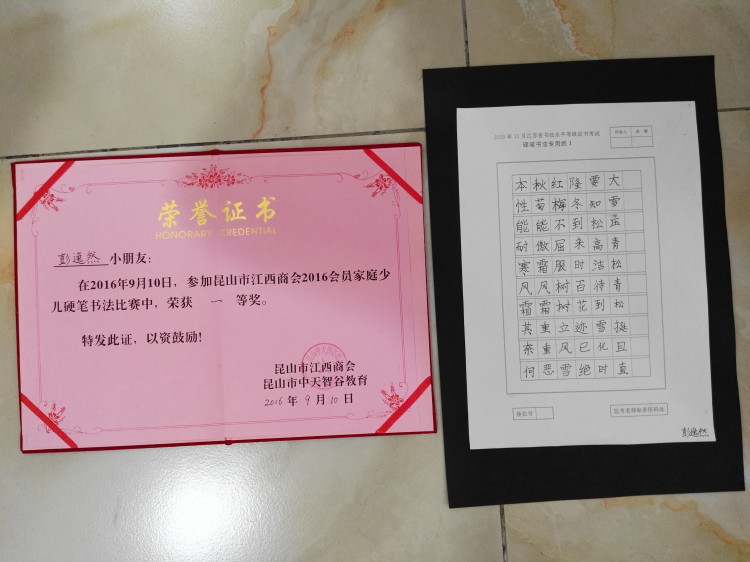 荣誉证书
HONORARY CREDENTIAL
彭逸然 小朋友：
在2016年9月10日，参加昆山市江西商会2016会员家庭少
儿硬笔书法比赛中，荣获 一 等奖。
特发此证，以资鼓励！
昆山市江西商会
昆山市中天智谷教育
2016 年 9 月 10 日
年 11 月江苏省书法水平等级证书考试
硬笔书法专用纸 1
大雪压青松青松挺且直
要知松高洁待到雪化时
隆冬到来时百花迹已绝
红梅不屈服树树立风雪
秋菊能傲霜风霜重重恶
本性能耐寒风霜其奈何
座位号
彭逸然